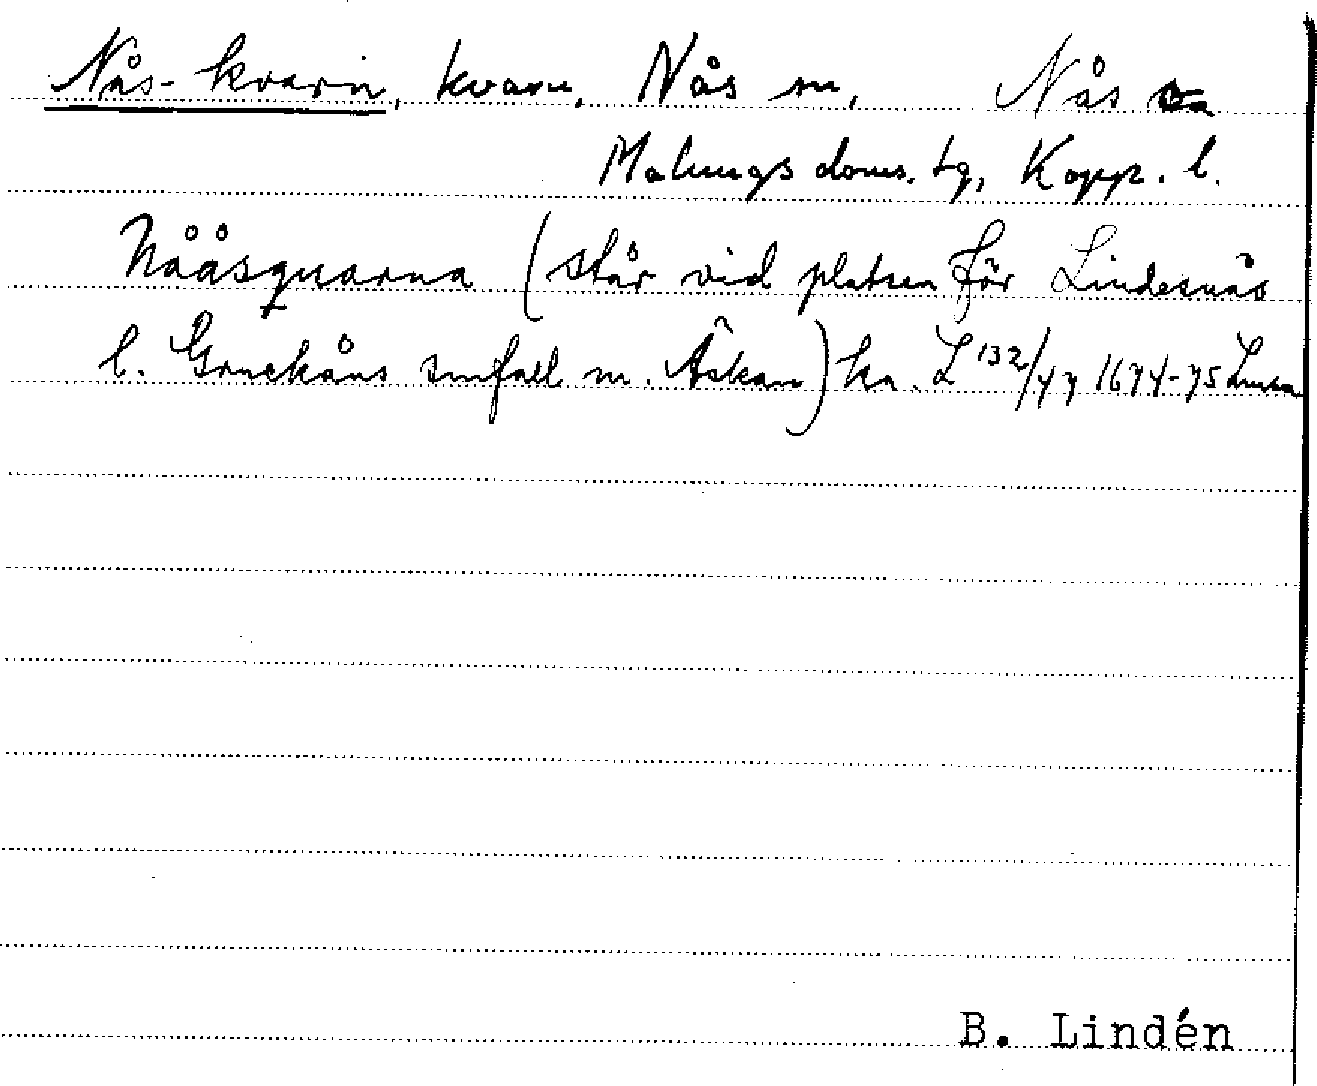 Nås-kvarn, kvarn, Nås sn, Nås
Malungs doms. tg, Kopp. l.
Nååsquarna (står vid platsen för Lindesnäs
l. Gruckåns smfall m. Åskan) ka. L 132/47 1674-75
B. Lindén